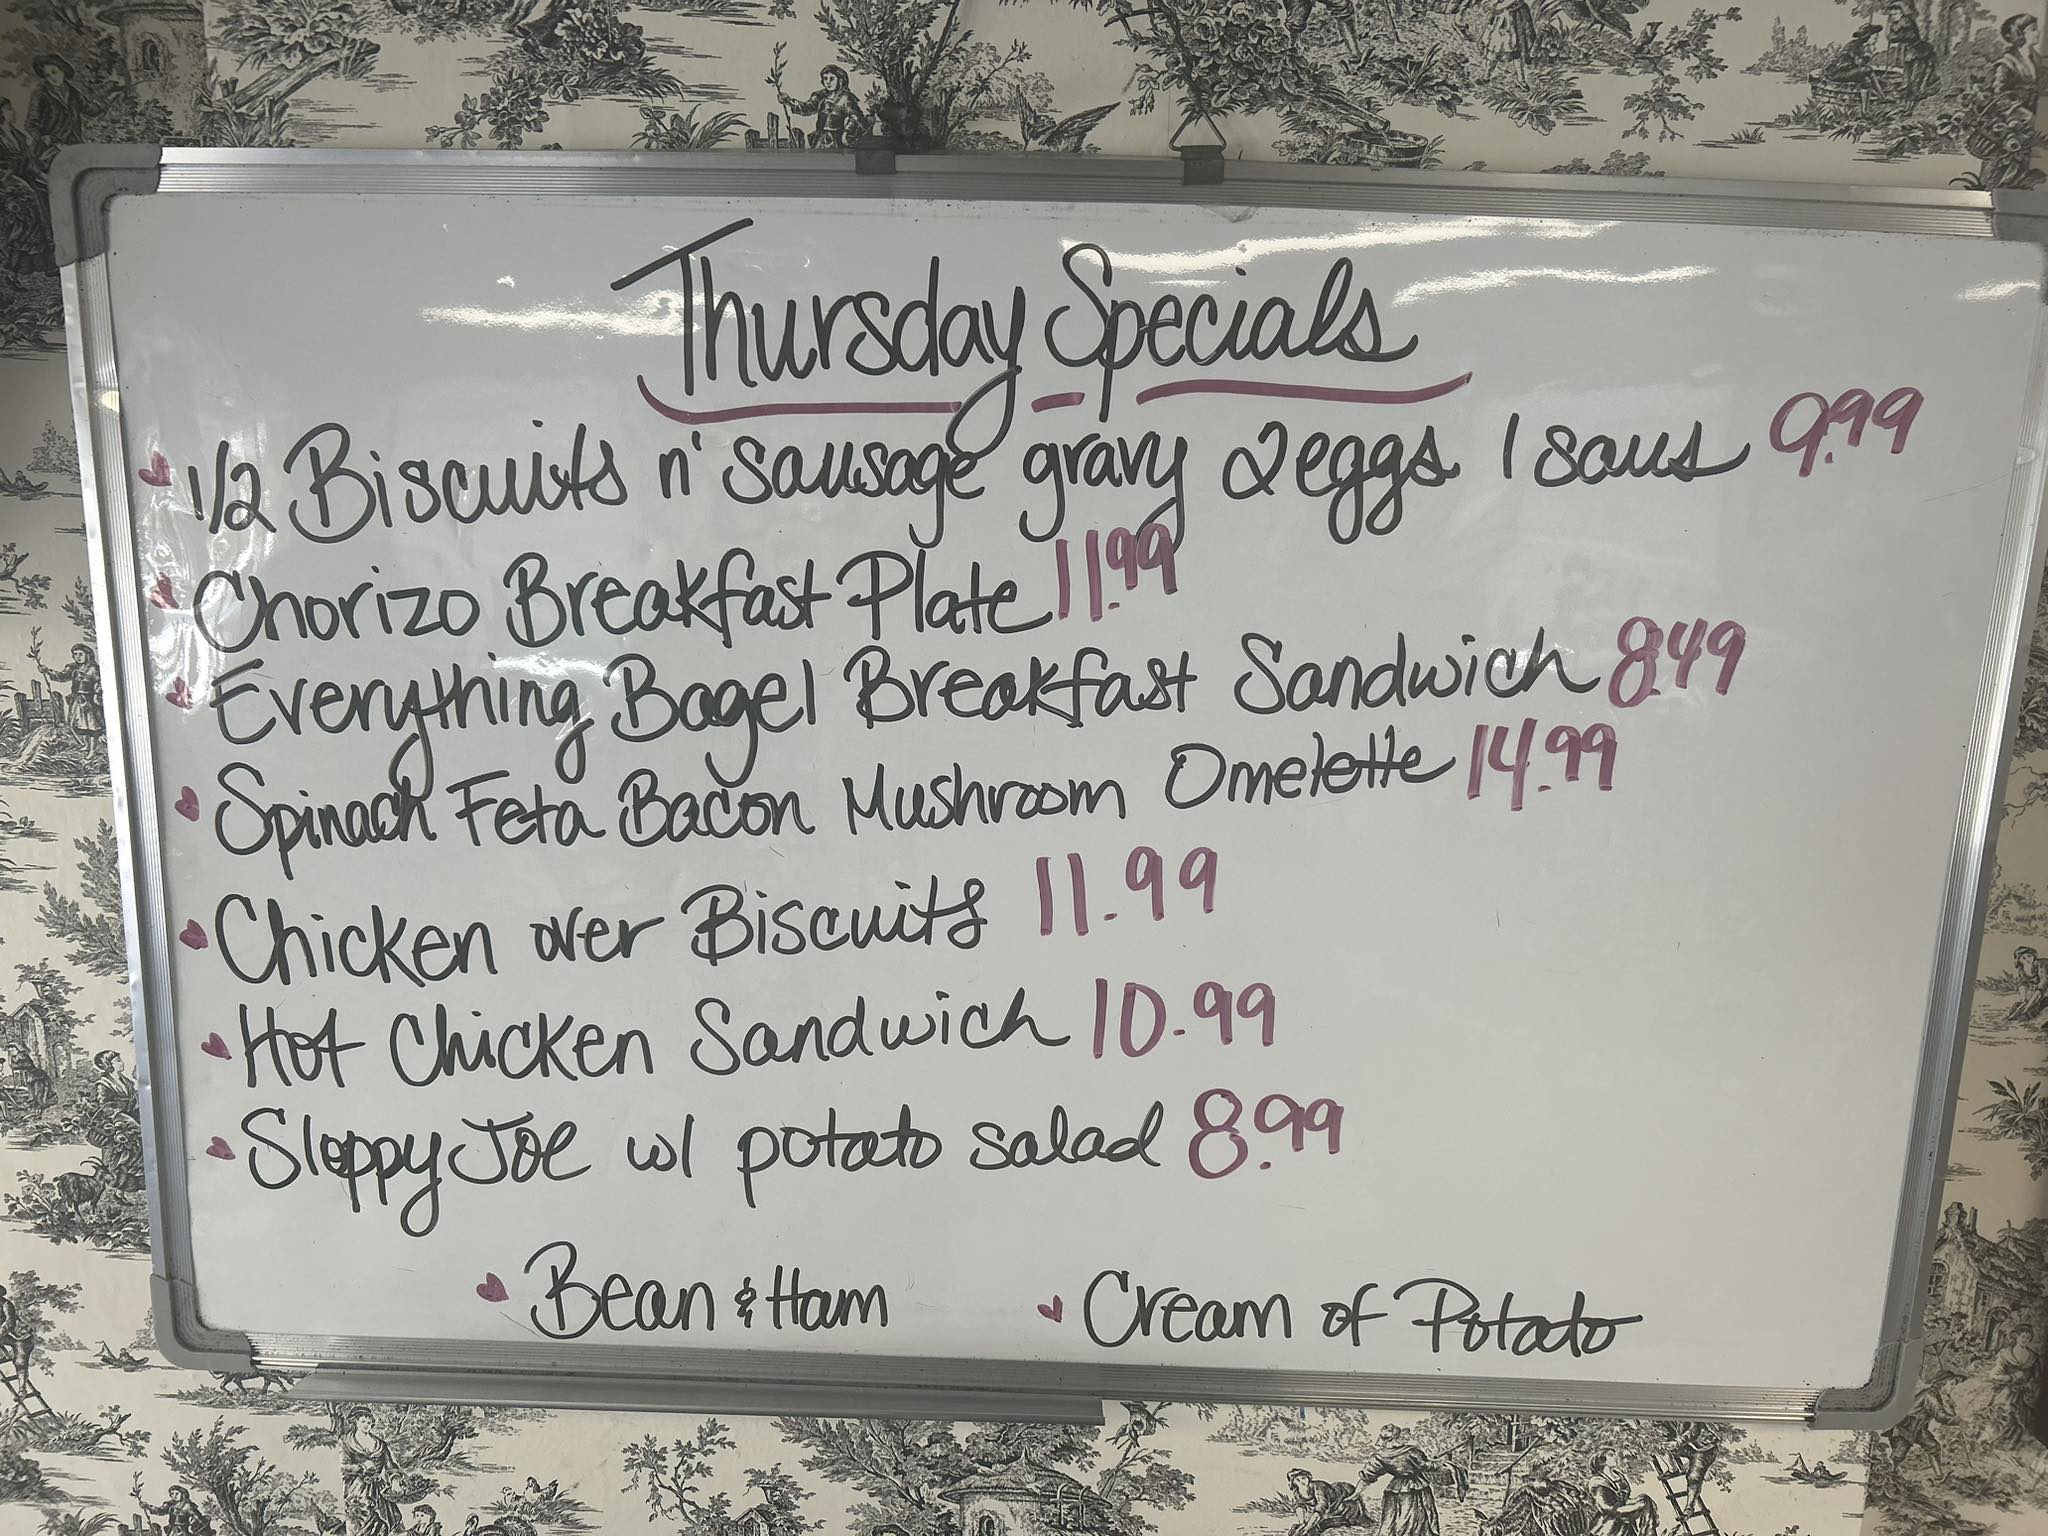 Thursday Specials
1/2 Biscuits n' sausage gravy 2 eggs 1 saus 9.99
Chorizo Breakfast Plate 11.99
Everything Bagel Breakfast Sandwich 8.49
Spinach Feta Bacon Mushroom Omelette 14.99
Chicken over Biscuits 11.99
Hot Chicken Sandwich 10.99
Sloppy Joe w/ potato salad 8.99
Bean & Ham
Cream of Potato